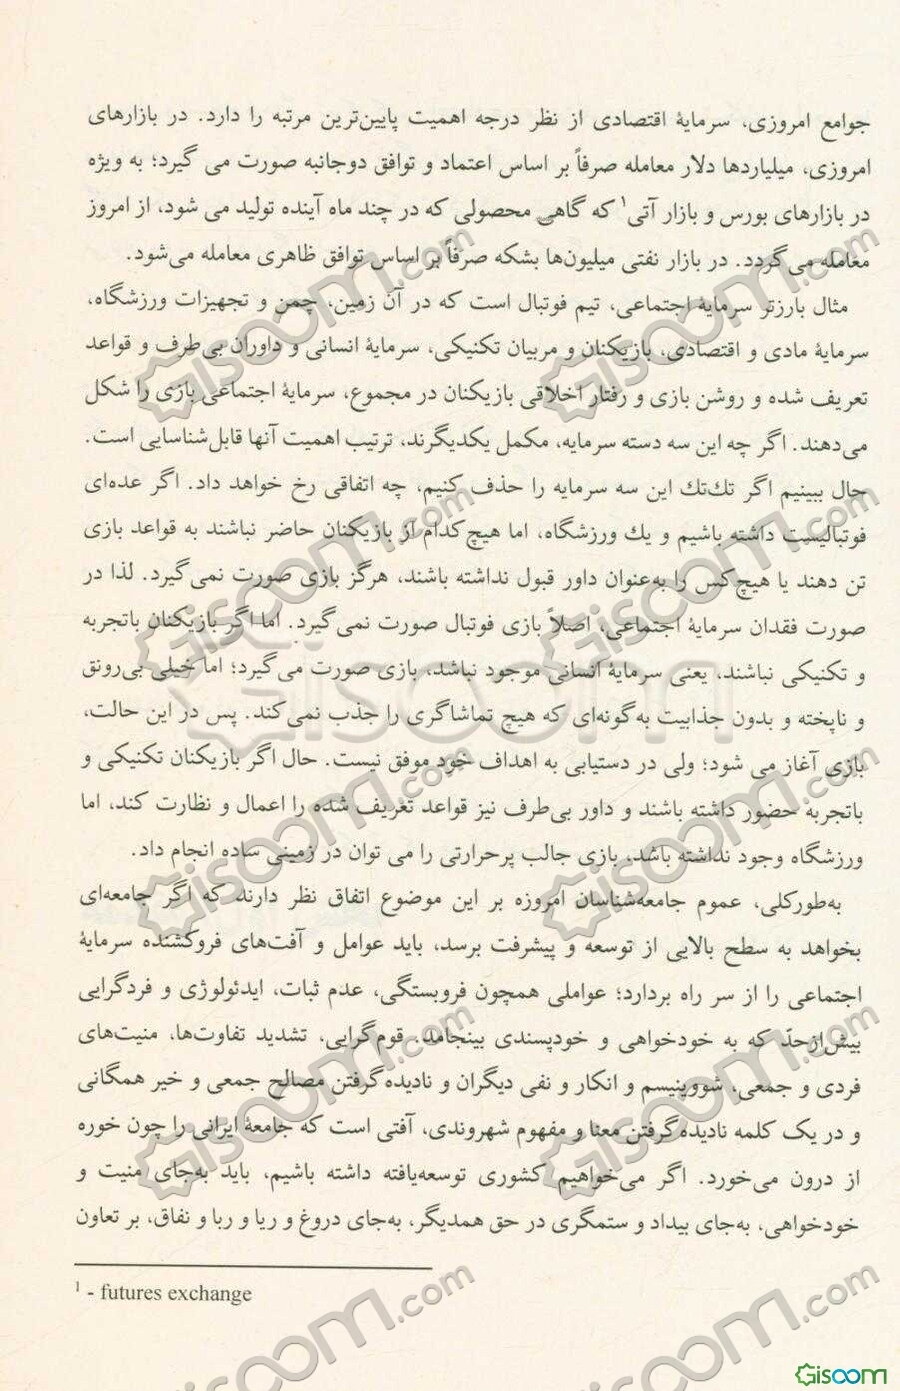 جوامع امروزی، سرمایهٔ اقتصادی از نظر درجه اهمیت پایین‌ترین مرتبه را دارد. در بازارهای
امروزی، میلیاردها دلار معامله صرفاً بر اساس اعتماد و توافق دوجانبه صورت می گیرد؛ به ویژه
در بازارهای بورس و بازار آتی۱ که گاهی محصولی که در چند ماه آینده تولید می شود، از امروز
معامله می گردد. در بازار نفتی میلیون‌ها بشکه صرفاً بر اساس توافق ظاهری معامله می‌شود.
مثال بارزتر سرمایهٔ اجتماعی، تیم فوتبال است که در آن زمین، چمن و تجهیزات ورزشگاه،
سرمایهٔ مادی و اقتصادی، بازیکنان و مربیان تکنیکی، سرمایهٔ انسانی و داوران بی‌طرف و قواعد
تعریف شده و روشن بازی و رفتار اخلاقی بازیکنان در مجموع، سرمایهٔ اجتماعی بازی را شکل
می‌دهند. اگر چه این سه دسته سرمایه، مکمل یکدیگرند، ترتیب اهمیت آنها قابل‌شناسایی است.
حال ببینیم اگر تك‌تك این سه سرمایه را حذف کنیم، چه اتفاقی رخ خواهد داد. اگر عده‌ای
فوتبالیست داشته باشیم و یك ورزشگاه، اما هیچ‌کدام از بازیکنان حاضر نباشند به قواعد بازی
تن دهند یا هیچ‌کس را به‌عنوان داور قبول نداشته باشند، هرگز بازی صورت نمی‌گیرد. لذا در
صورت فقدان سرمایهٔ اجتماعی، اصلاً بازی فوتبال صورت نمی‌گیرد. اما اگر بازیکنان باتجربه
و تکنیکی نباشند، یعنی سرمایهٔ انسانی موجود نباشد، بازی صورت می‌گیرد؛ اما خیلی بی‌رونق
و ناپخته و بدون جذابیت به‌گونه‌ای که هیچ تماشاگری را جذب نمی‌کند. پس در این حالت،
بازی آغاز می شود؛ ولی در دستیابی به اهداف خود موفق نیست. حال اگر بازیکنان تکنیکی و
باتجربه حضور داشته باشند و داور بی‌طرف نیز قواعد تعریف شده را اعمال و نظارت کند، اما
ورزشگاه وجود نداشته باشد، بازی جالب پرحرارتی را می توان در زمینی ساده انجام داد.
به‌طورکلی، عموم جامعه‌شناسان امروزه بر این موضوع اتفاق نظر دارند که اگر جامعه‌ای
بخواهد به سطح بالایی از توسعه و پیشرفت برسد، باید عوامل و آفت‌های فروکشنده سرمایهٔ
اجتماعی را از سر راه بردارد؛ عواملی همچون فروبستگی، عدم ثبات، ایدئولوژی و فردگرایی
بیش‌ازحدّ که به خودخواهی و خودپسندی بینجامد. قوم‌گرایی، تشدید تفاوت‌ها، منیت‌های
فردی و جمعی، شووینیسم و انکار و نفی دیگران و نادیده‌گرفتن مصالح جمعی و خیر همگانی
و در یک کلمه نادیده‌گرفتن معنا و مفهوم شهروندی، آفتی است که جامعهٔ ایرانی را چون خوره
از درون می‌خورد. اگر می‌خواهیم کشوری توسعه‌یافته داشته باشیم، باید به‌جای منیت و
خودخواهی، به‌جای بیداد و ستمگری در حق همدیگر، به‌جای دروغ و ریا و ربا و نفاق، بر تعاون
1 - futures exchange
Gisoom